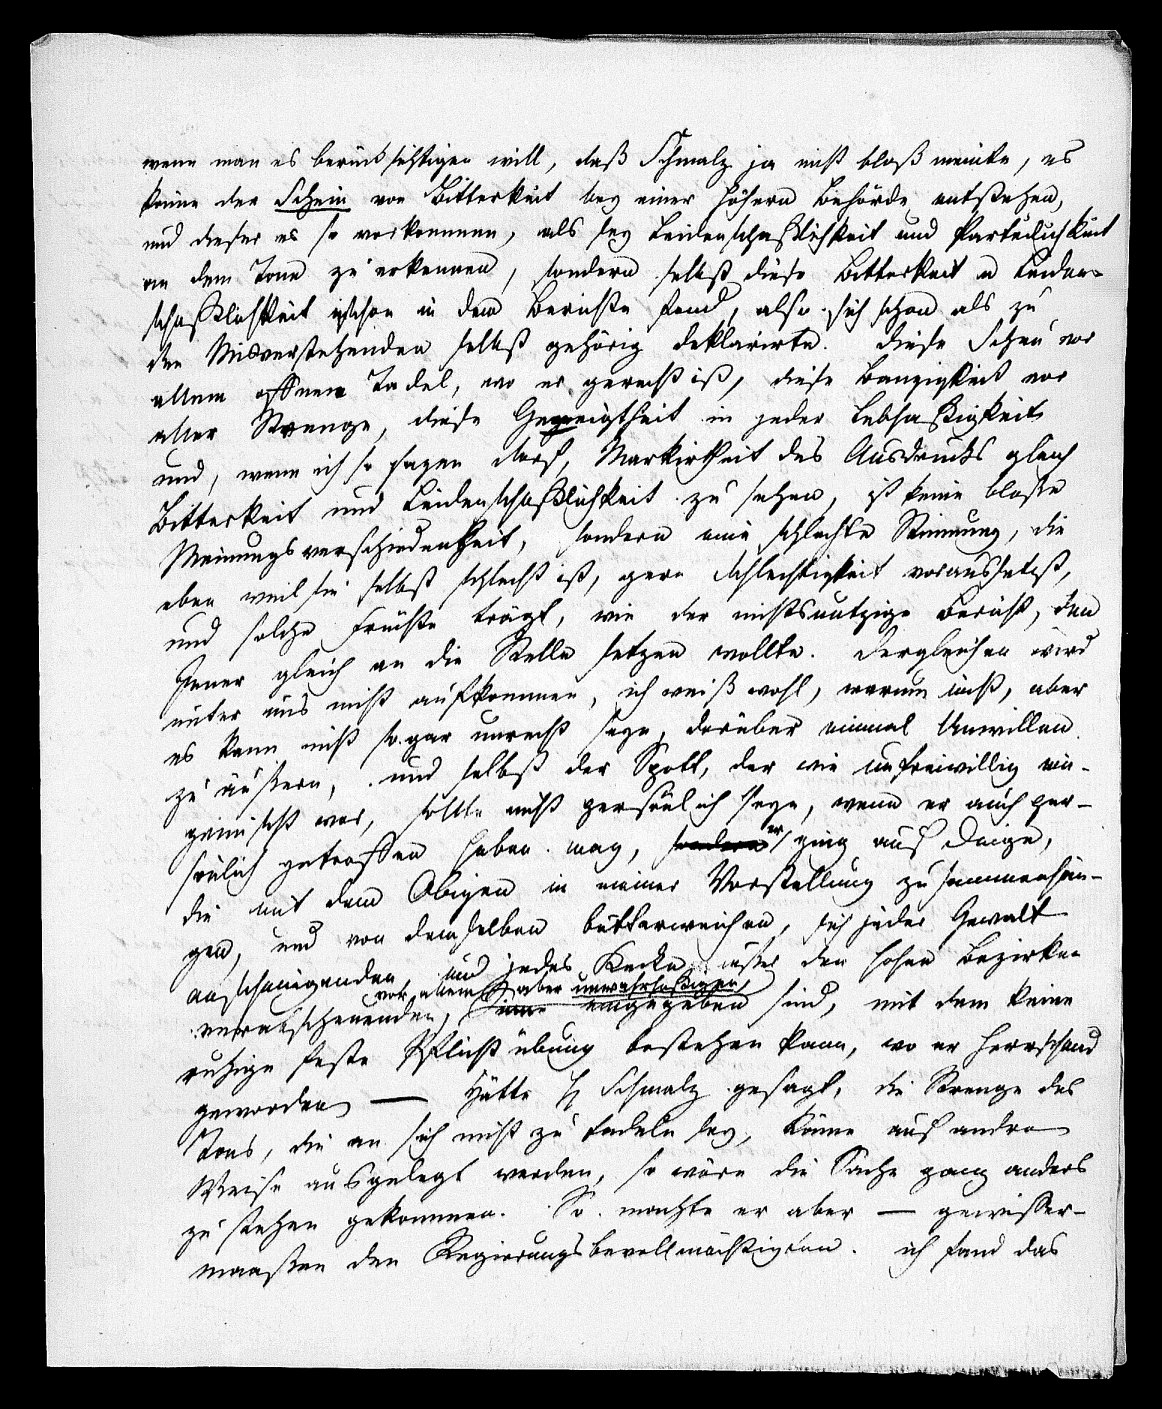 wenn man es berücksichtigen will, daß Schmalz ja nicht bloß meinte, es
könne der Schein von Bitterkeit bey einer höhern Behörde entstehen,
und dieser es so vorkommen, als sey Leidenschaftlichkeit und Parteilichkeit
an dem Tone zu erkennen, sondern selbst diese Bitterkeit u Leiden-
schaftlichkeit schon in dem Berichte fand, also sich schon als zu
den Misverstehenden selbst gehörig deklarirte. Diese Scheu vor
allem offnen Tadel, wo er gerecht ist, diese Bangigkeit vor
aller Strenge, diese Geneigtheit in jeder Lebhaftigkeit
und, wenn ich so sagen darf, Markirtheit des Ausdrucks gleich
Bitterkeit und Leidenschaftlichkeit zu sehen, ist keine bloße
Meinungsverschiedenheit, sondern eine schlechte Stimmung, die
eben weil sie selbst schlecht ist, gern Schlechtigkeit voraussetzt,
und solche Früchte trägt, wie der nichtsnutzige Bericht, den
Jener gleich an die Stelle setzen wollte. Dergleichen wird
unter uns nicht aufkommen, ich weiß wohl, warum nicht, aber
es kann nicht so gar unrecht seyn, darüber einmal Unwillen
zu äußern, und selbst der Spott, der wie unfreiwillig ein-
gemischt war, sollte nicht persönlich seyn, wenn er auch per-
sönlich getroffen haben mag, er ging auf Dinge,
die mit dem Obigen in meiner Vorstellung zusammenhän-
gen, und von demselben butterweichen, sich jeder Gewalt
anschmiegenden, und jedes Kecke außer den hohen Bezirken
vor allem aber unwahrhaftigen
verabscheuenden, Sinne eingegeben sind, mit dem keine
ruhige feste Pflichtübung bestehen kann, wo er herrschend
geworden — Hätte H Schmalz gesagt, die Strenge des
Tons, die an sich nicht zu tadeln sey, könne auf andre
Weise ausgelegt werden, so wäre die Sache ganz anders
zu stehen gekommen. So machte er aber — gewisser-
maaßen den Regierungsbevollmächtigten. ich fand das